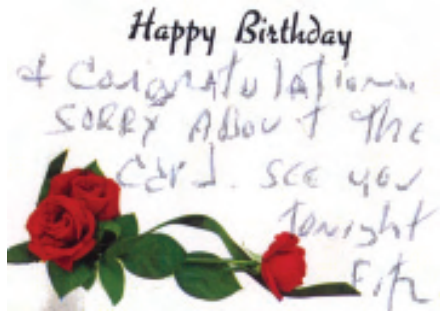 Happy Birthday
& Congratulations
SORRY ABOUT The
CARd. SEE you
tonight
Fitz